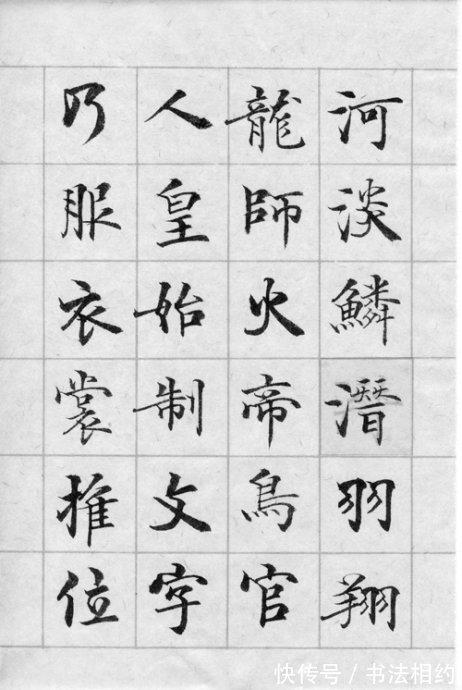 河淡鱗潛羽翔
龍師火帝鳥官
人皇始制文字
乃服衣裳推位
快传号/书法相约